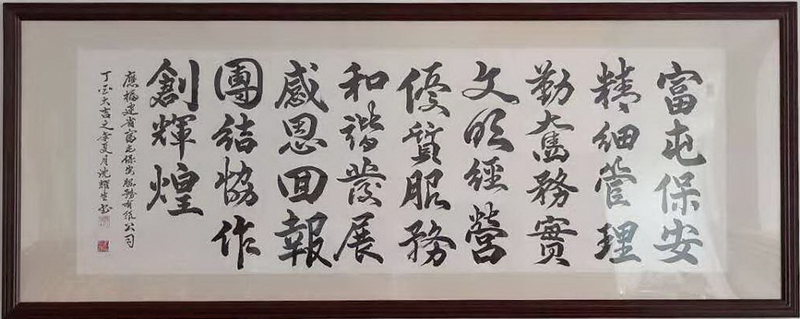 富屯保安
精细管理
勤奮務實
文明經營
優質服務
和諧發展
感恩回報
團結協作
創輝煌
應福建省富屯保安服務有限公司
丁酉大吉之年夏月沈耀生书